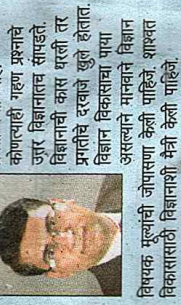 कोणत्याही गहण प्रश्नाचे
उत्तर विज्ञानातच सापडते.
विज्ञानाची कास धरली तर
प्रगतीचे दरवाजे खुले होतात.
विज्ञान विकासाचा पाया
असल्याने मानवाने विज्ञान
विषयक मूल्याची जोपासणा केली पाहिजे, शाश्वत
विकासासाठी विज्ञानाशी मैत्री केली पाहिजे,